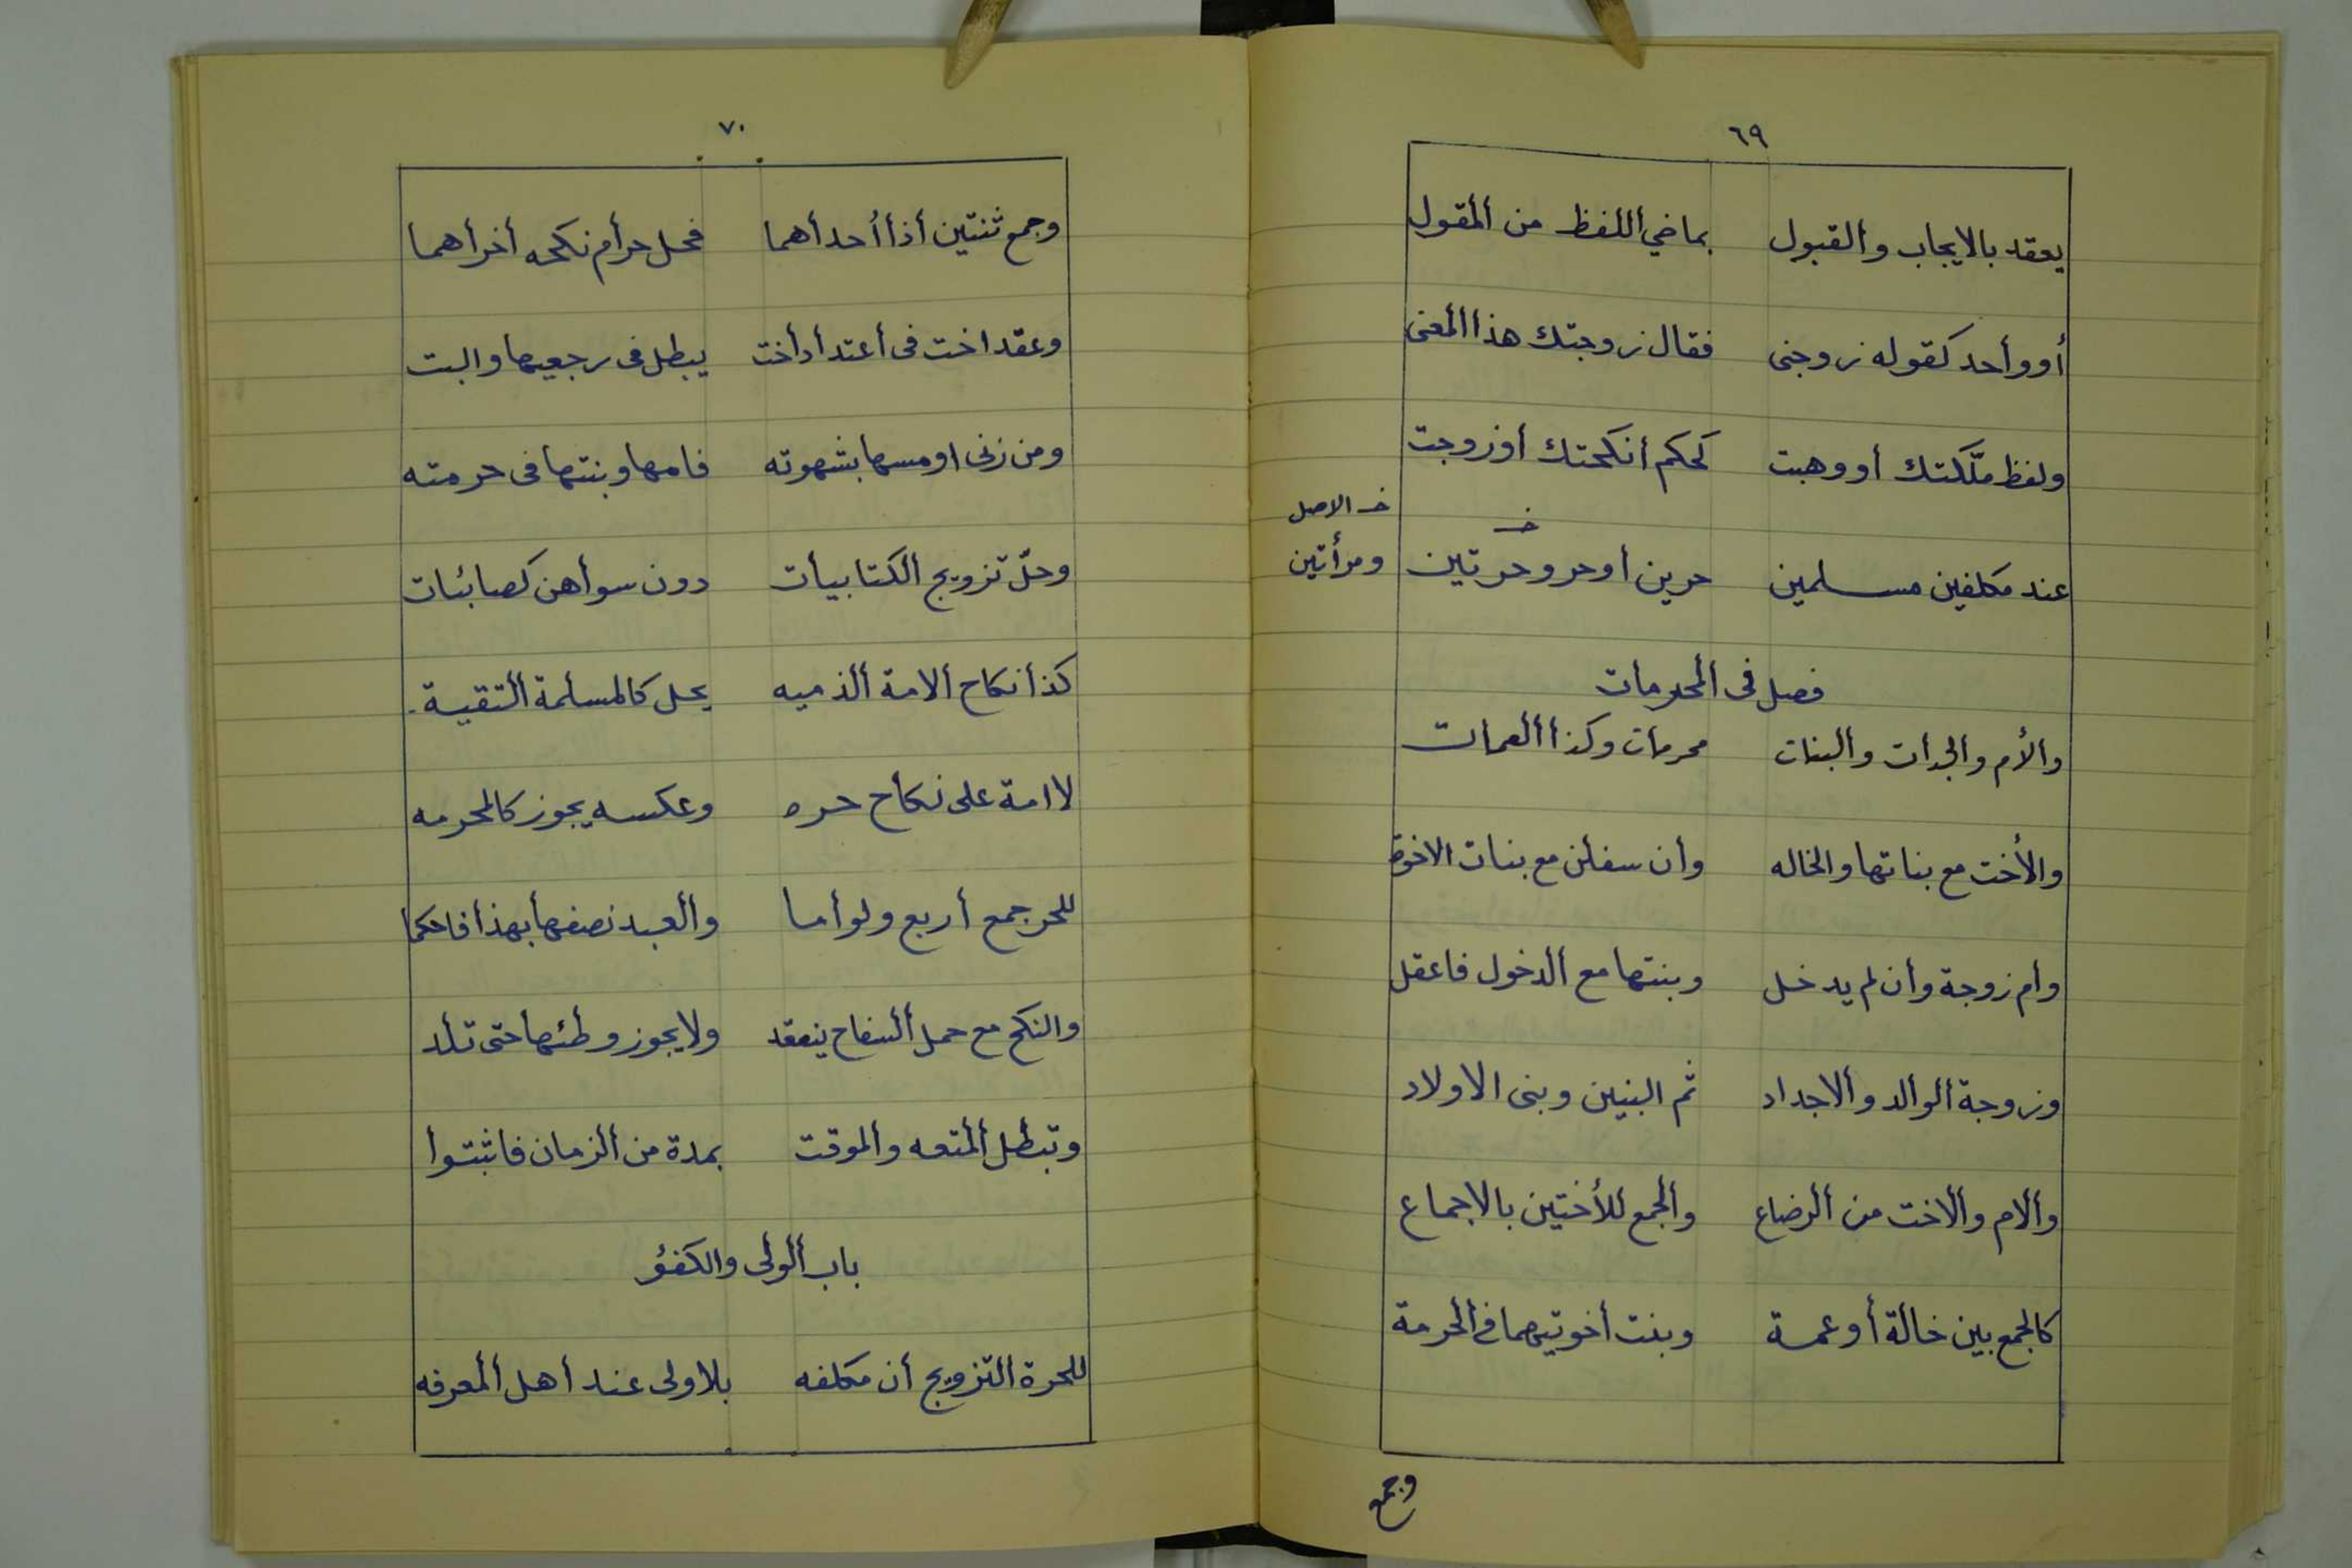 ٦٩
يعقد بالايجاب والقبول بماضي اللفظ من المقول
أو وأحد كقوله زوجني فقال زوجتك هذا المعنى
ولفظ ملّكتك أو وهبت كحكم أنكحتك أو زوجت
خـ الاصل
خـ
عند مكلفين مسلمين حرين أو حر وحرتين ومرأتين
فصل في المحرمات
والأم والجدات والبنات محرمات وكذا العمات
والأخت مع بناتها والخاله وان سفلن مع بنات الاخوة
وام زوجة وأن لم يدخل وبنتها مع الدخول فاعقل
وزوجة الوالد والاجداد ثم البنين وبنى الاولاد
والام والاخت من الرضاع والجمع للأختين بالاجماع
كالجمع بين خالة أو عمة وبنت أخوتيهما في الحرمة
وجمع
٧٠
وجمع ثنتين أذا أحدأهما فحل حرأم نكحه أخرأهما
وعقد اخت في أعتدأد أخت يبطل في رجعيها والبت
ومن زنى او مسها بشهوته فامها وبنتها في حرمته
وحلّ تزويج الكتابيات دون سوأهن كصابئات
كذا نكاح الامة الذميه يحل كالمسلمة التقية
لا امة على نكاح حره وعكسه يجوز كالمحرمه
للحر جمع أربع ولو أما والعبد نصفها بهذا فاحكما
والنكح مع حمل السفاح ينعقد ولا يجوز وطئها حتى تلد
وتبطل المتعه والموقت بمدة من الزمان فاثبتوا
باب الولى والكفؤ
للحرة التزويج أن مكلفه بلا ولى عند أهل المعرفه